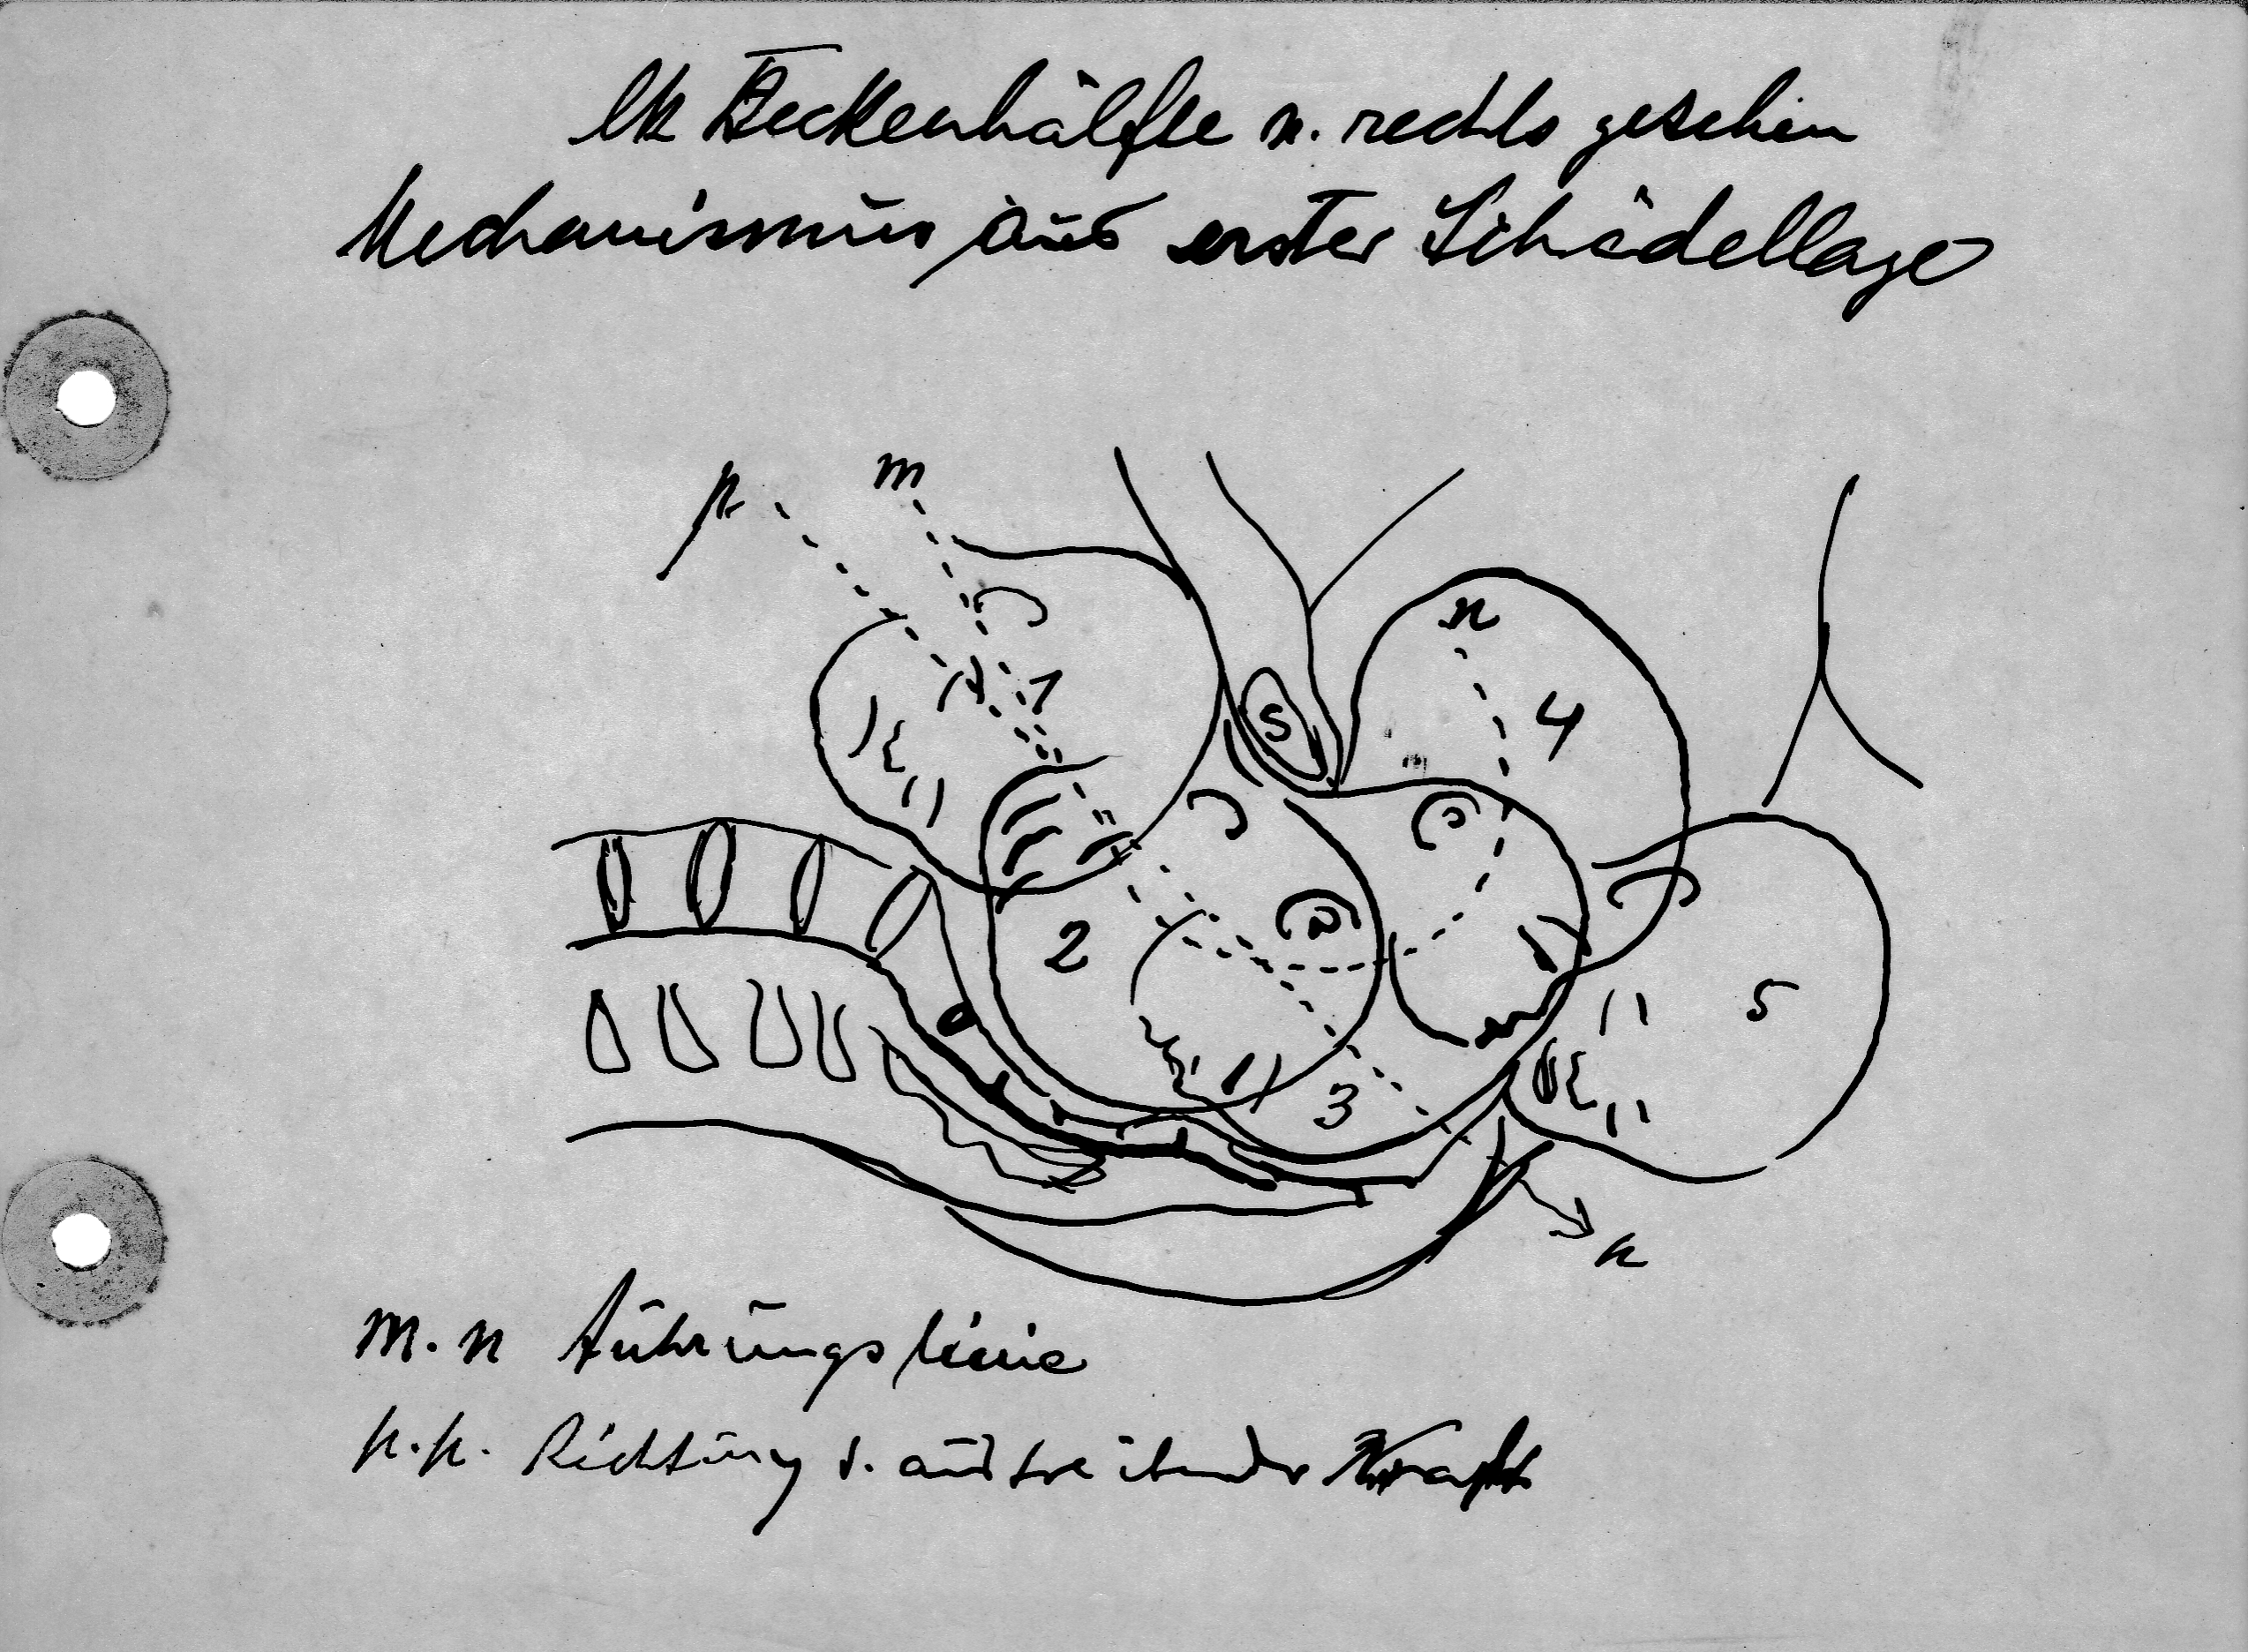 lk Beckenhälfte n. rechts gesehen
Mechanismus aus erster Schädellage
p m
n
1 S 4
2 5
3
p
m. n Führungslinie
p. p. Richtung d. austreibender Kraft